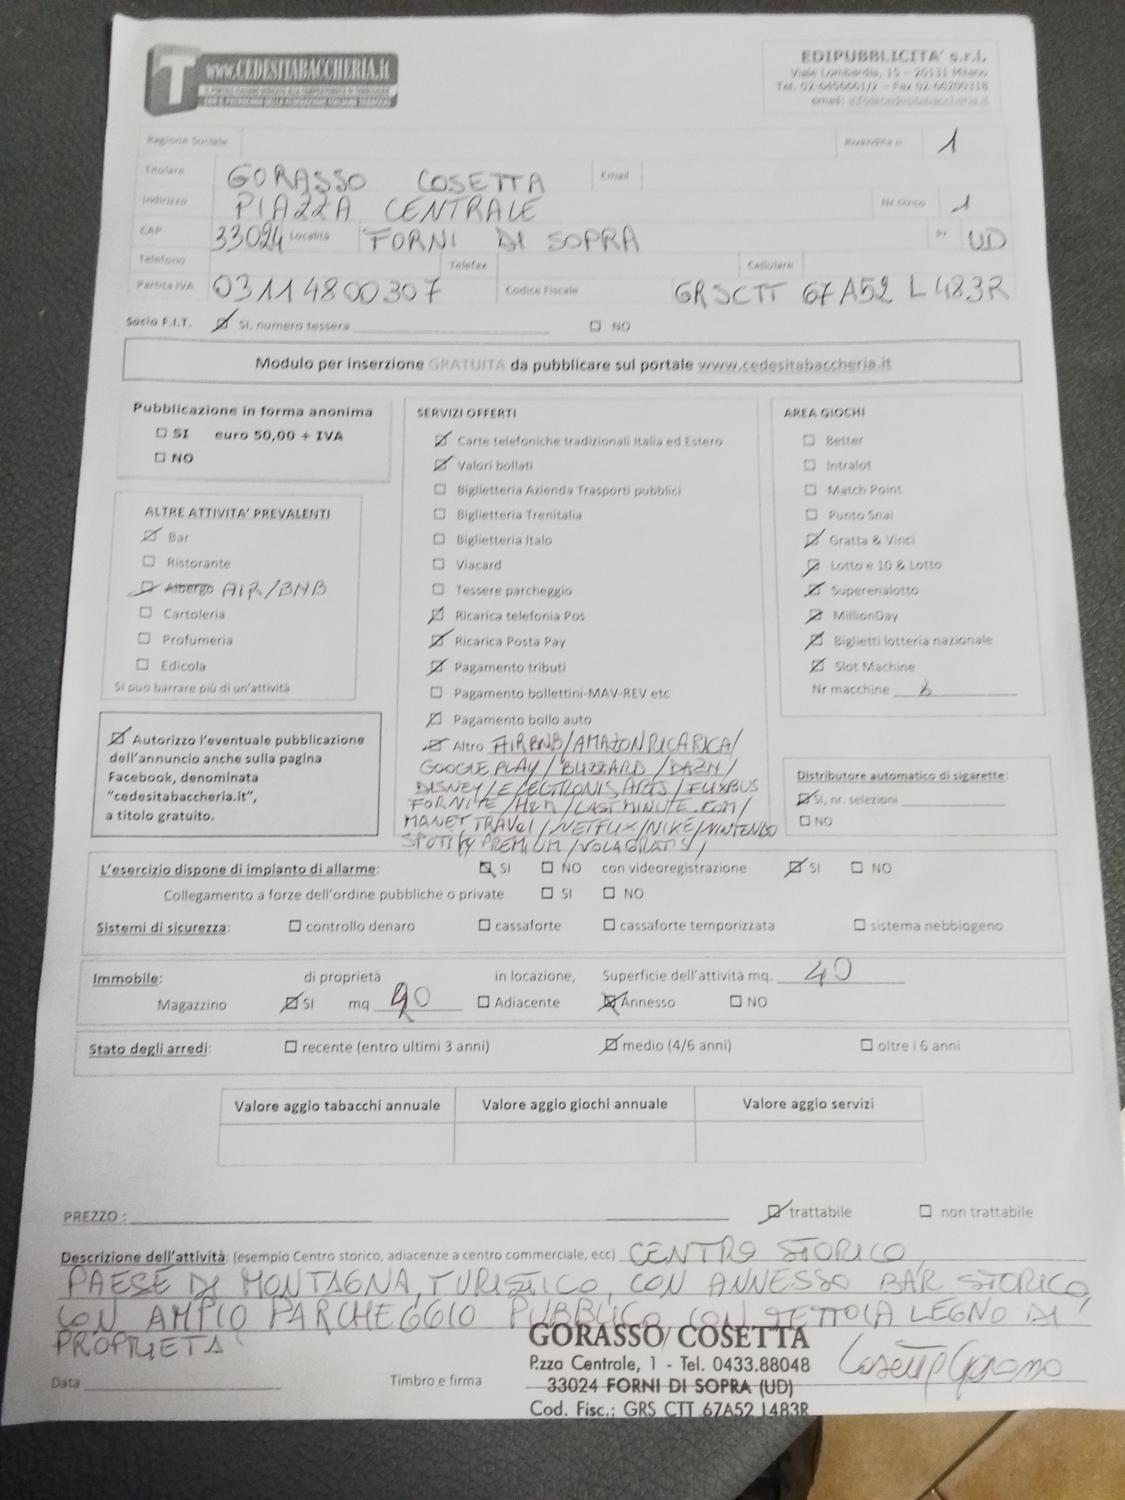 www.CEDESITABACCHERIA.it
EDIPUBBLICITA' s.r.l.
Viale Lombardia, 15 – 20131 Milano
email: info@cedesitabaccheria.it
Ragione Sociale
Rivendita n. 1
Titolare GORASSO COSETTA Email
Indirizzo PIAZZA CENTRALE Nr civico 1
CAP 33024 Località FORNI DI SOPRA Pr UD
Telefono Telefax Cellulare
Partita IVA 03114800307 Codice Fiscale GRSCTT 67A52 L483R
Socio F.I.T. ☒ SI, numero tessera ☐ NO
Modulo per inserzione GRATUITA da pubblicare sul portale www.cedesitabaccheria.it
Pubblicazione in forma anonima
☐ SI euro 50,00 + IVA
☐ NO
ALTRE ATTIVITA' PREVALENTI
☒ Bar
☐ Ristorante
☒ Albergo AIR/BNB
☐ Cartoleria
☐ Profumeria
☐ Edicola
Si può barrare più di un'attività
☒ Autorizzo l'eventuale pubblicazione
dell'annuncio anche sulla pagina
Facebook, denominata
"cedesitabaccheria.it",
a titolo gratuito.
SERVIZI OFFERTI
☒ Carte telefoniche tradizionali Italia ed Estero
☒ Valori bollati
☐ Biglietteria Azienda Trasporti pubblici
☐ Biglietteria Trenitalia
☐ Biglietteria Italo
☐ Viacard
☐ Tessere parcheggio
☒ Ricarica telefonia Pos
☒ Ricarica Posta Pay
☒ Pagamento tributi
☐ Pagamento bollettini-MAV-REV etc
☒ Pagamento bollo auto
☒ Altro AIRBNB/AMAZON RICARICA/
GOOGLE PLAY/BLIZZARD/DAZN/
DISNEY/ELECTRONIS ARTS/FLIXBUS
FORNITE/H&M/LASTMINUTE.COM/
MANET TRAVEL/NETFLIX/NIKE/NINTENDO
SPOTIFY PREMIUM/VOLAGRATIS/
AREA GIOCHI
☐ Better
☐ Intralot
☐ Match Point
☐ Punto Snai
☒ Gratta & Vinci
☒ Lotto e 10 & Lotto
☒ Superenalotto
☒ MillionDay
☒ Biglietti lotteria nazionale
☒ Slot Machine
Nr macchine
Distributore automatico di sigarette:
☒ SI, nr. selezioni
☐ NO
L'esercizio dispone di impianto di allarme: ☒ SI ☐ NO con videoregistrazione ☒ SI ☐ NO
Collegamento a forze dell'ordine pubbliche o private ☐ SI ☐ NO
Sistemi di sicurezza: ☐ controllo denaro ☐ cassaforte ☐ cassaforte temporizzata ☐ sistema nebbiogeno
Immobile: di proprietà in locazione, Superficie dell'attività mq. 40
Magazzino ☒ SI mq ☐ Adiacente ☒ Annesso ☐ NO
Stato degli arredi: ☐ recente (entro ultimi 3 anni) ☒ medio (4/6 anni) ☐ oltre i 6 anni
Valore aggio tabacchi annuale Valore aggio giochi annuale Valore aggio servizi
PREZZO : ☒ trattabile ☐ non trattabile
Descrizione dell'attività: (esempio Centro storico, adiacenze a centro commerciale, ecc) CENTRO STORICO,
PAESE DI MONTAGNA, TURISTICO, CON ANNESSO BAR STORICO,
CON AMPIO PARCHEGGIO PUBBLICO CON TETTOIA LEGNO DI
PROPRIETA'
GORASSO COSETTA
P.zza Centrale, 1 - Tel. 0433.88048
33024 FORNI DI SOPRA (UD)
Cod. Fisc.: GRS CTT 67A52 L483R
Cosetta Gorasso
Data Timbro e firma